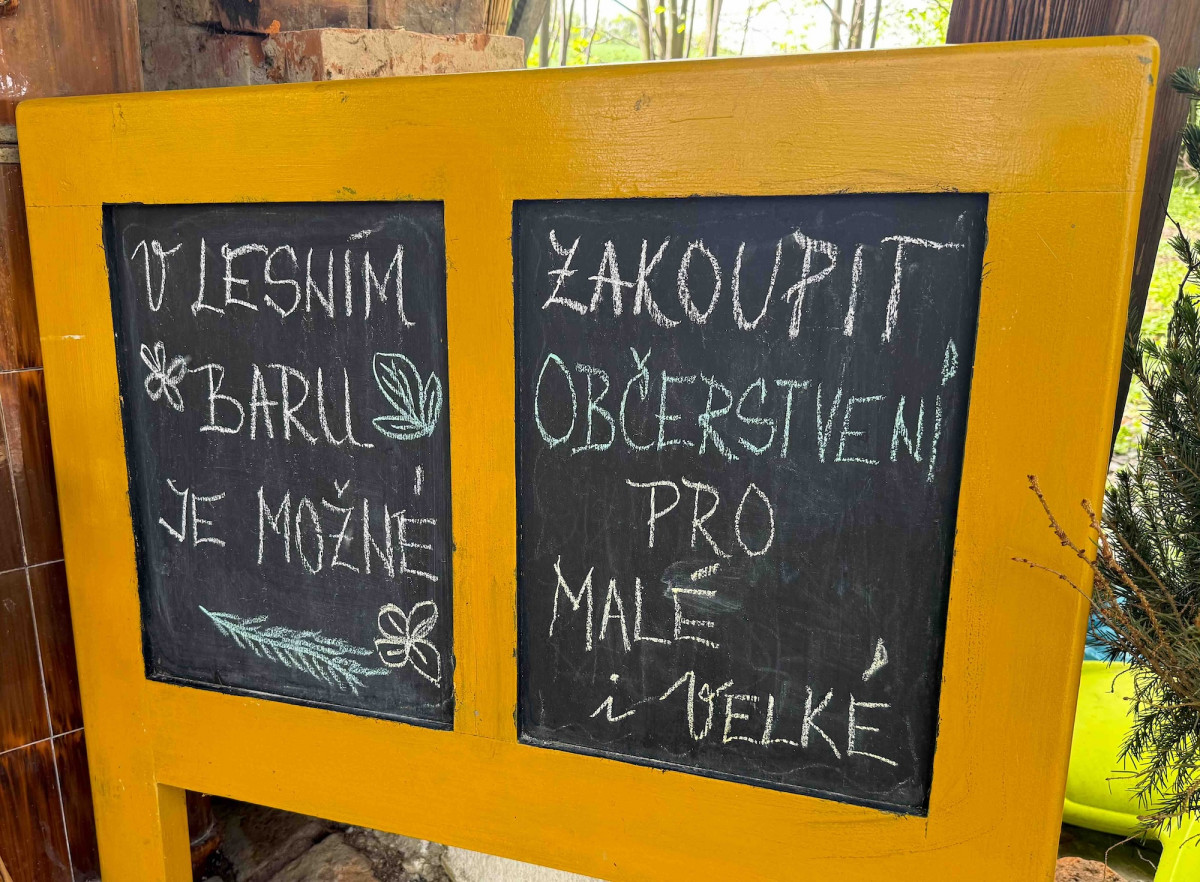 V LESNÍM
BARU
JE MOŽNÉ
ZAKOUPIT
OBČERSTVENÍ
PRO
MALÉ
i VELKÉ